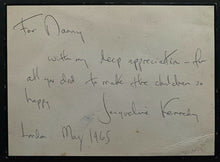 For Nanny
with my deep appreciation - for
all you did to make the children so
happy
Jacqueline Kennedy
London. May 1965